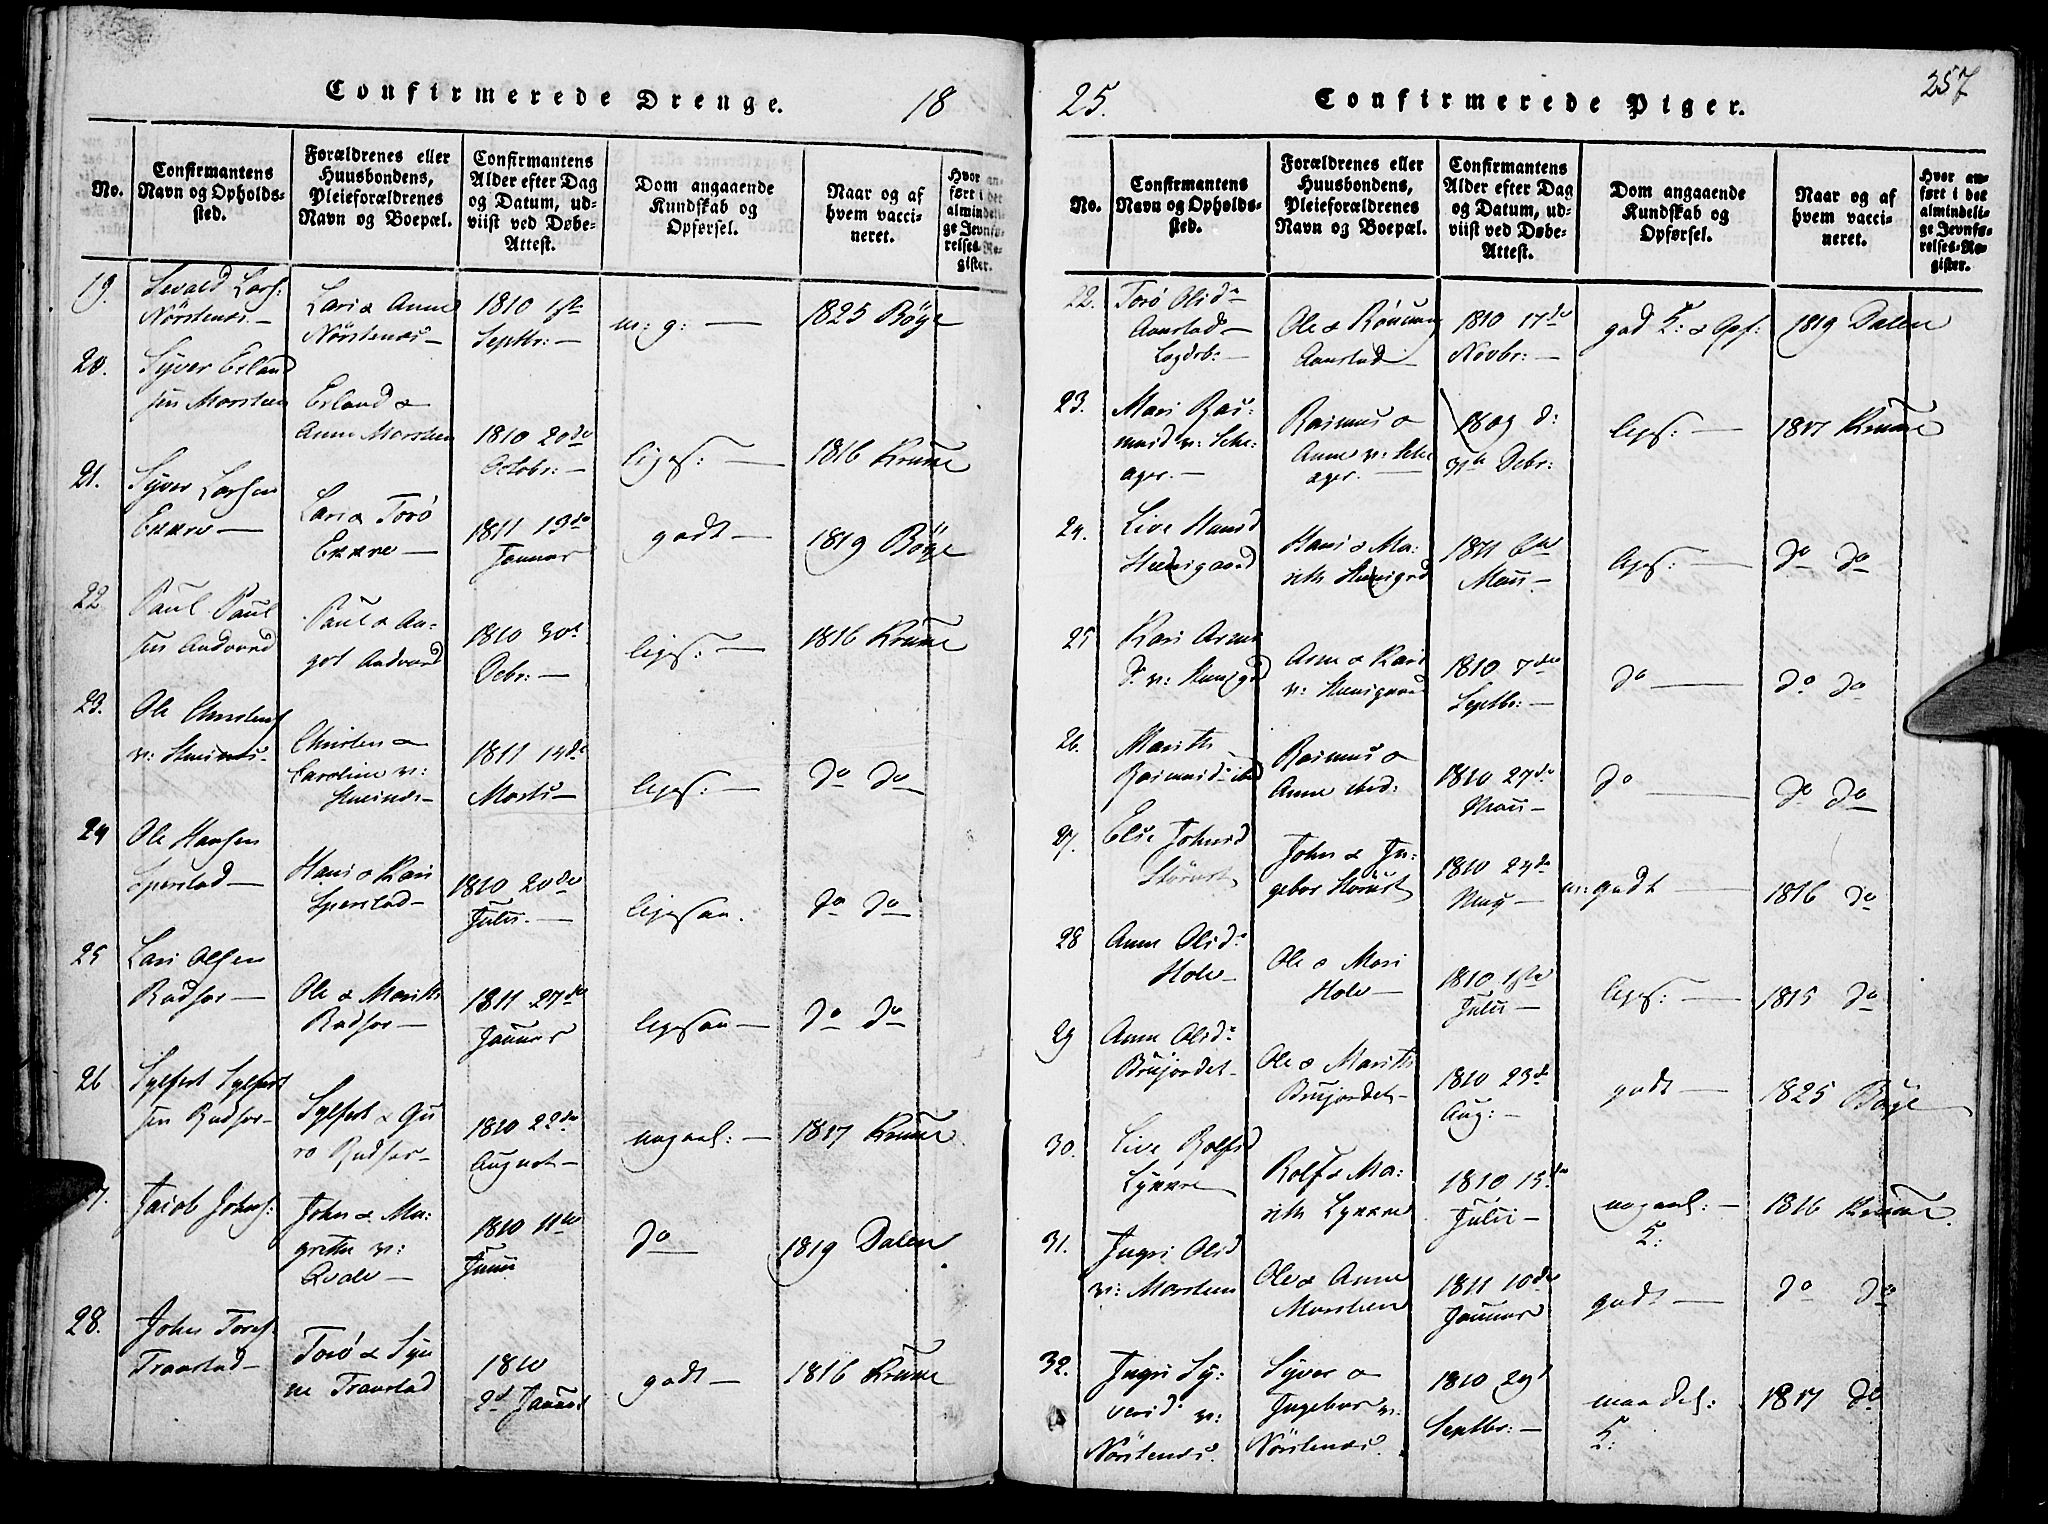 Confirmerede Drenge.
18
No.
Confirmantens
Navn og Opholds-
sted.
Forældrenes eller
Huusbondens,
Pleieforældrenes
Navn og Boepæl.
Confirmantens
Alder efter Dag
og Datum, ud-
viist ved Døbe-
Attest.
Dom angaaende
Kundskab og
Opførsel.
Naar og af
hvem vacci-
neret.
Hvor an-
ført i det
almindeli-
ge Jevnfø-
relses-Re-
gister.
19.
Sevald Lars:
Nörstenes.—
Lars & Anne
Nörstenes—
1810 1ste
Septbr:—
m: g:—
1825 Böÿe
20.
Syver Erland
sen Marsteen
Erland &
Anne Marsteen
1810 20de
Octobr:—
liges:—
1816 Krune
21.
Syver Larsen
Ekkre—
Lars & Torö
Ekkre—
1811 13de
Januar
godt—
1819 Böÿe
22
Paul Paul
sen Andvord
Paul & An-
got Andvord
1810 30t
Octbr:—
liges:—
1816 Krune
23.
Ole Christens
v:
Christen &
Caroline v:
1811 14de
Marts—
liges:—
do do
24
Ole Hansen
Sperstad—
Hans & Kari
Sperstad—
1810 20de
Julii.—
ligesaa.
do do
25
Lars Olsen
Rudsar—
Ole & Marith
Rudsar—
1811 27de
Januar
ligesaa—
do do
26
Sylfest Sylfest
sen Rudsar—
Sylfest & Gu
ro Rudsar—
1810 22de
August—
nogael:—
1817 Krune
27.
Jacob Johns:
John & Ma:
grethe v:
Qvale—
1810 11te
Junii
do
1819 Dalen
28.
John Tores:
Traustad—
Torö & Syn
ne Traustad
1810
2d Januar
godt—
1816 Krune
25.
Confirmerede Piger.
257
No.
Confirmantens
Navn og Opholds-
sted.
Forældrenes eller
Huusbondens,
Pleieforældrenes
Navn og Boepæl.
Confirmantens
Alder efter Dag
og Datum, ud-
viist ved Døbe-
Attest.
Dom angaaende
Kundskab og
Opførsel.
Naar og af
hvem vacci-
neret.
Hvor an-
ført i det
almindeli-
ge Jevnfø-
relses-Re-
gister.
22.
Torö Olsd:
Aanstad—
Ole & Rönnaug
Aanstad
1810 17de
Novbr:—
god K: & Opf:
1819 Dalen
23.
Mari Ras:
musd v: Skje-
ager.—
Rasmus &
Anne v: Skje
ager.—
1809 d:
31te Decbr:
liges:—
1817 Krune
24.
Live Hansd
Hans & Ma:
rith
1811 6te
Maii—
liges:—
do do
25
Kari Arne
d: v:
Arne & Kari
v:
1810 7de
Septbr:—
do—
do do
26.
Marith
Rasmusd: ibid
Rasmus &
Anne ibid:
1810 27de
Maii—
do—
do do
27.
Else Johnsd
John & In:
gebor
1810 24de
Maij—
m: godt—
1816 do
28
Anne Olsd:
Hole—
Ole & Mari
Hole—
1810 1ste
Julii—
liges:—
1815 do
29
Anne Olsd:
Brujordet—
Ole & Marith
Brujordet—
1810 23de
Aug:—
godt—
1825 Böÿe
30.
Live Rolfsd
Lykkre
Rolf & Ma:
rith Lykkre
1810 15de
Julii—
nogael:—
K:
1816 Krune.
31.
Ingri Olsd
v: Marsteen
Ole & Anne
Marsteen
1811 10de
Januar
godt—
do do
32.
Ingri Sÿ:
versd: v:
Nörstenes.
Sÿver &
Ingebor v:
Nörstenes.
1810 29t
Septbr:—
maadel:
K:
1817 do